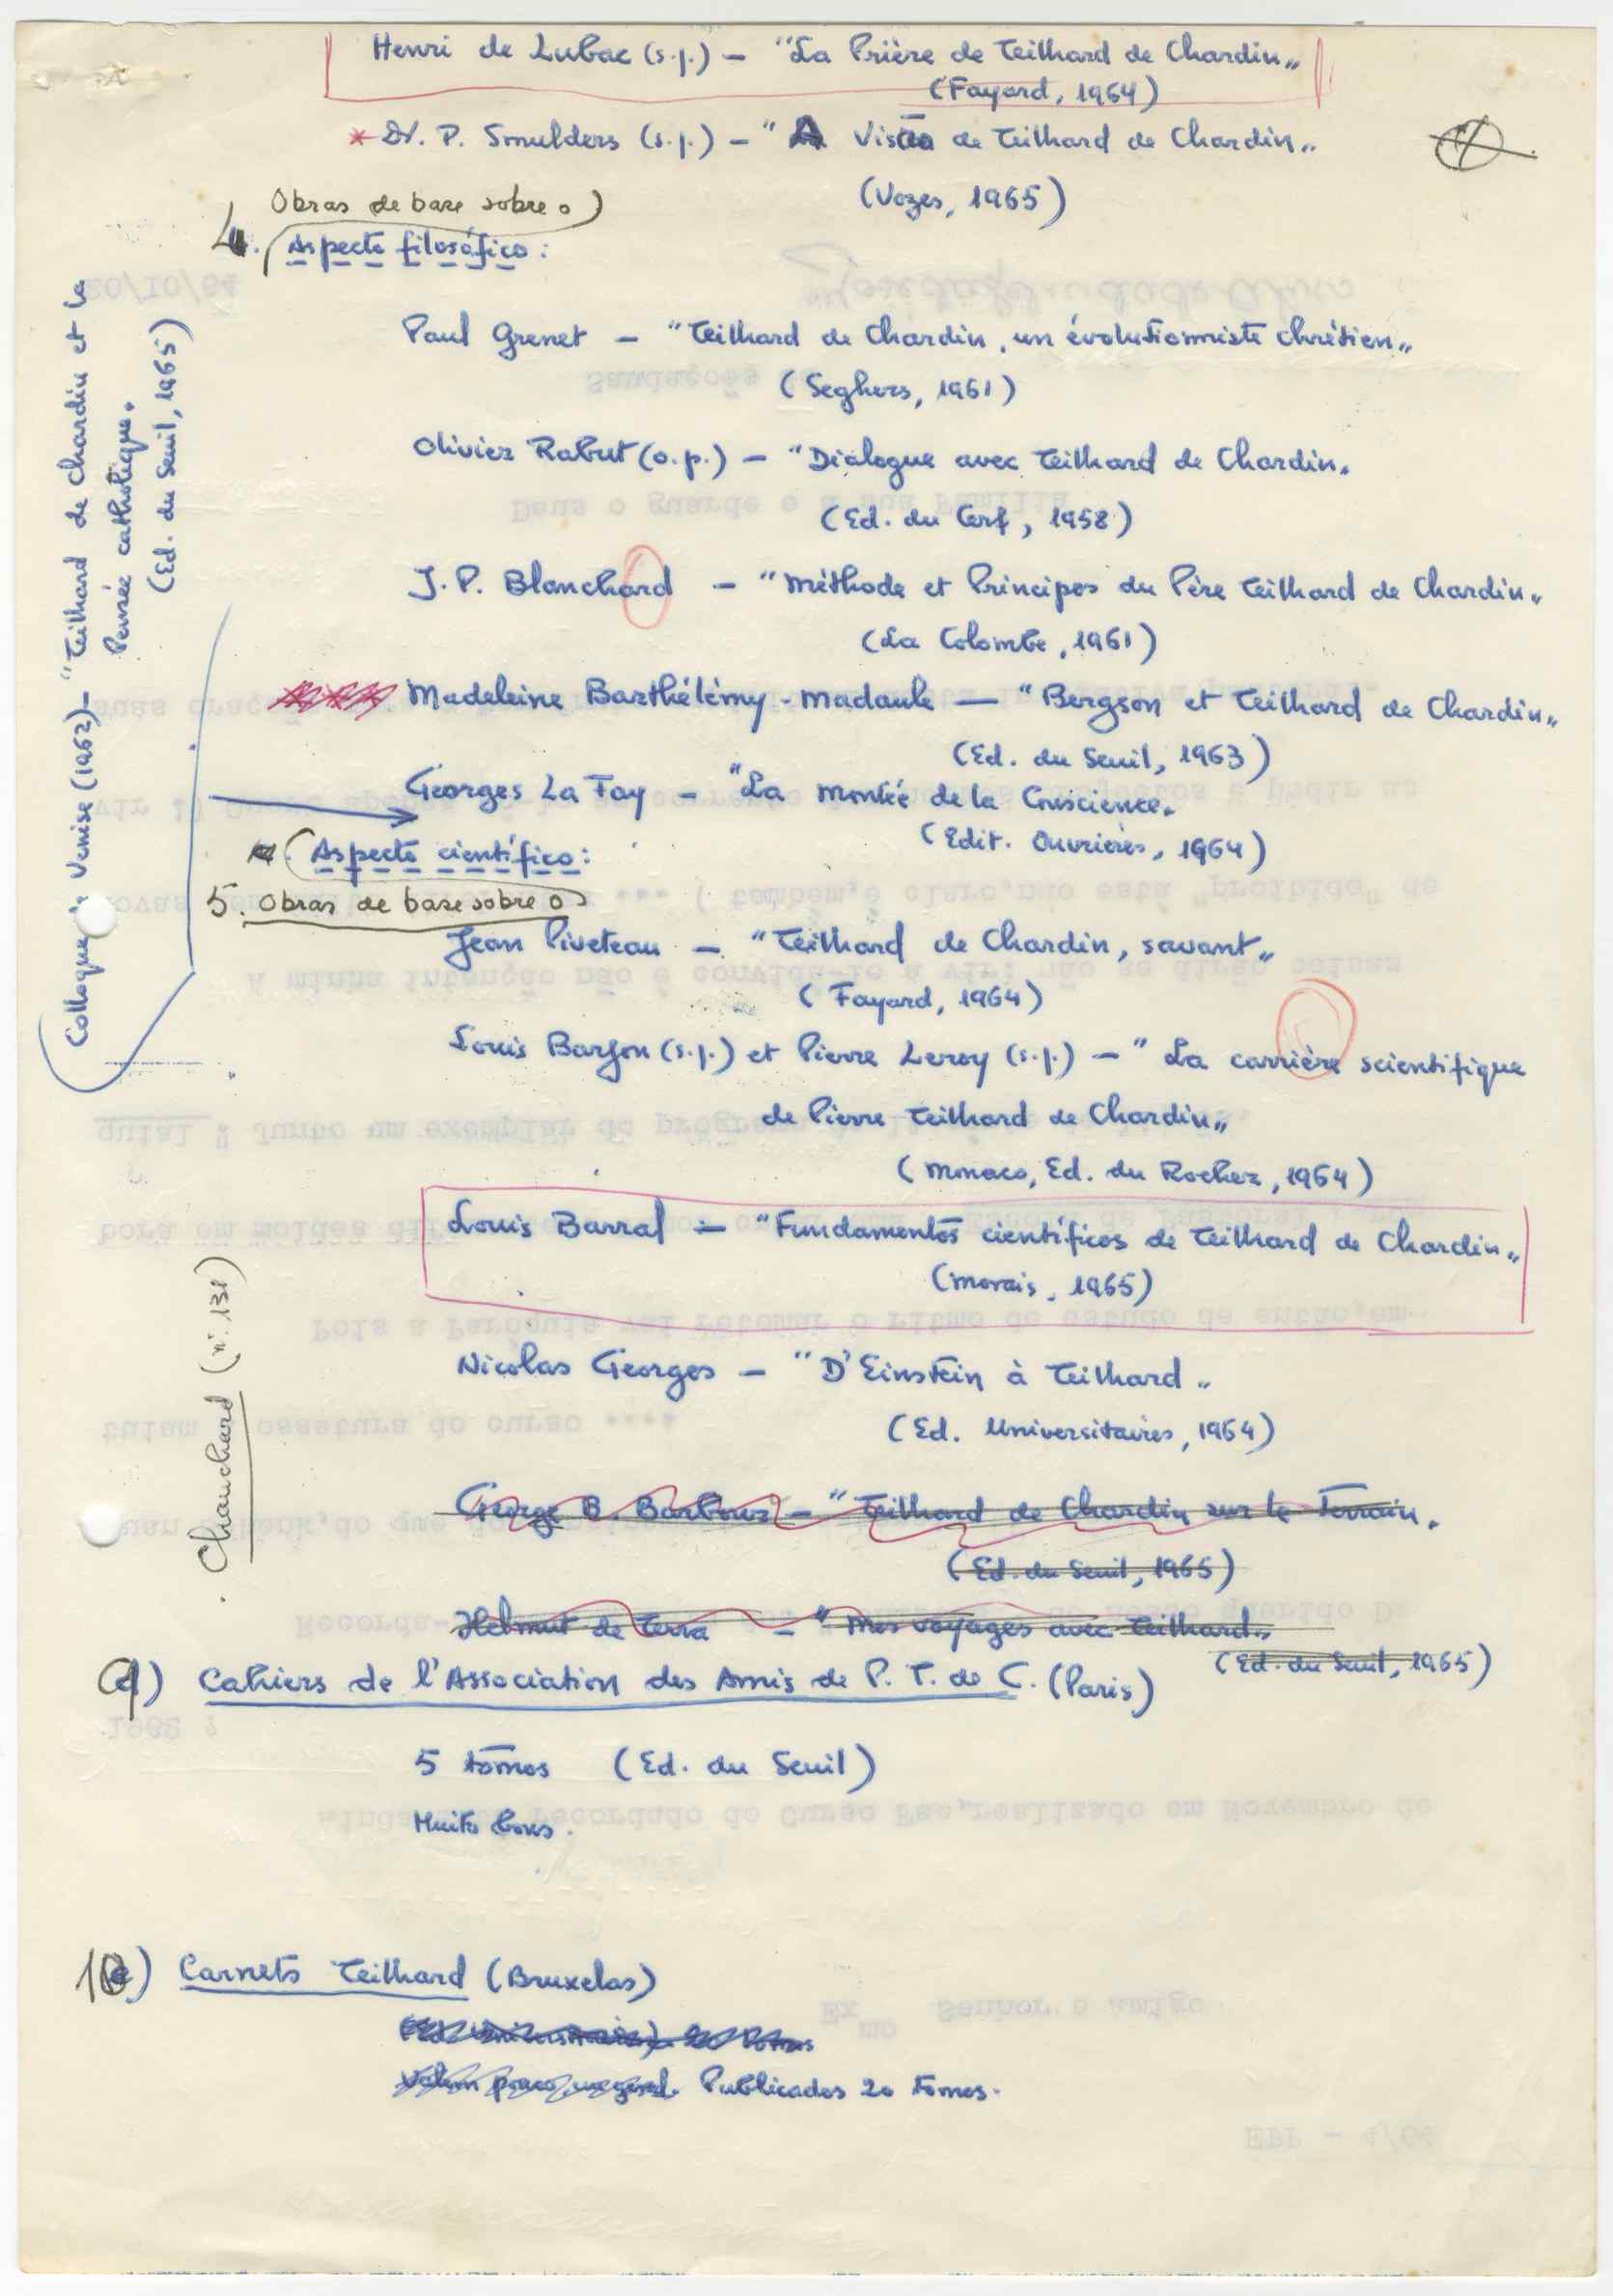 Henri de Lubac (s.j.) – "La Prière de Teilhard de Chardin"
(Fayard, 1964)
* Dr. P. Smulders (s.j.) – "A Visão de Teilhard de Chardin"
(Vozes, 1965)
Obras de base sobre o
4. Aspecto filosófico:
Paul Grenet – "Teilhard de Chardin, un évolutionniste chrétien"
(Seghers, 1961)
Olivier Rabut (o.p.) – "Dialogue avec Teilhard de Chardin.
(Ed. du Cerf, 1958)
J. P. Blanchard – "Méthode et Principes du Père Teilhard de Chardin"
(La Colombe, 1961)
Madeleine Barthélémy-Madaule – "Bergson et Teilhard de Chardin"
(Ed. du Seuil, 1963)
Georges La Fay – "La montée de la Conscience.
(Edit. Ouvrières, 1964)
Aspecto científico:
5. Obras de base sobre o
Jean Piveteau – "Teilhard de Chardin, savant"
(Fayard, 1964)
Louis Barjon (s.j.) et Pierre Leroy (s.j.) – "La carrière scientifique
de Pierre Teilhard de Chardin"
(Monaco, Ed. du Rocher, 1964)
Louis Barral – "Fundamentos científicos de Teilhard de Chardin"
(Morais, 1965)
Nicolas Georges – "D'Einstein à Teilhard"
(Ed. Universitaires, 1964)
George B. Barbour – "Teilhard de Chardin sur le terrain.
(Ed. du Seuil, 1965)
Helmut de Terra – "Mes voyages avec Teilhard"
(Ed. du Seuil, 1965)
Cahiers de l'Association des Amis de P. T. de C. (Paris)
5 tomos (Ed. du Seuil)
Muito bons.
Carnets Teilhard (Bruxelas)
Publicados 20 tomos.
Colloque de Venise (1962) – "Teilhard de Chardin et la
Pensée catholique.
(Ed. du Seuil, 1965)
Chauchard (nº. 131)